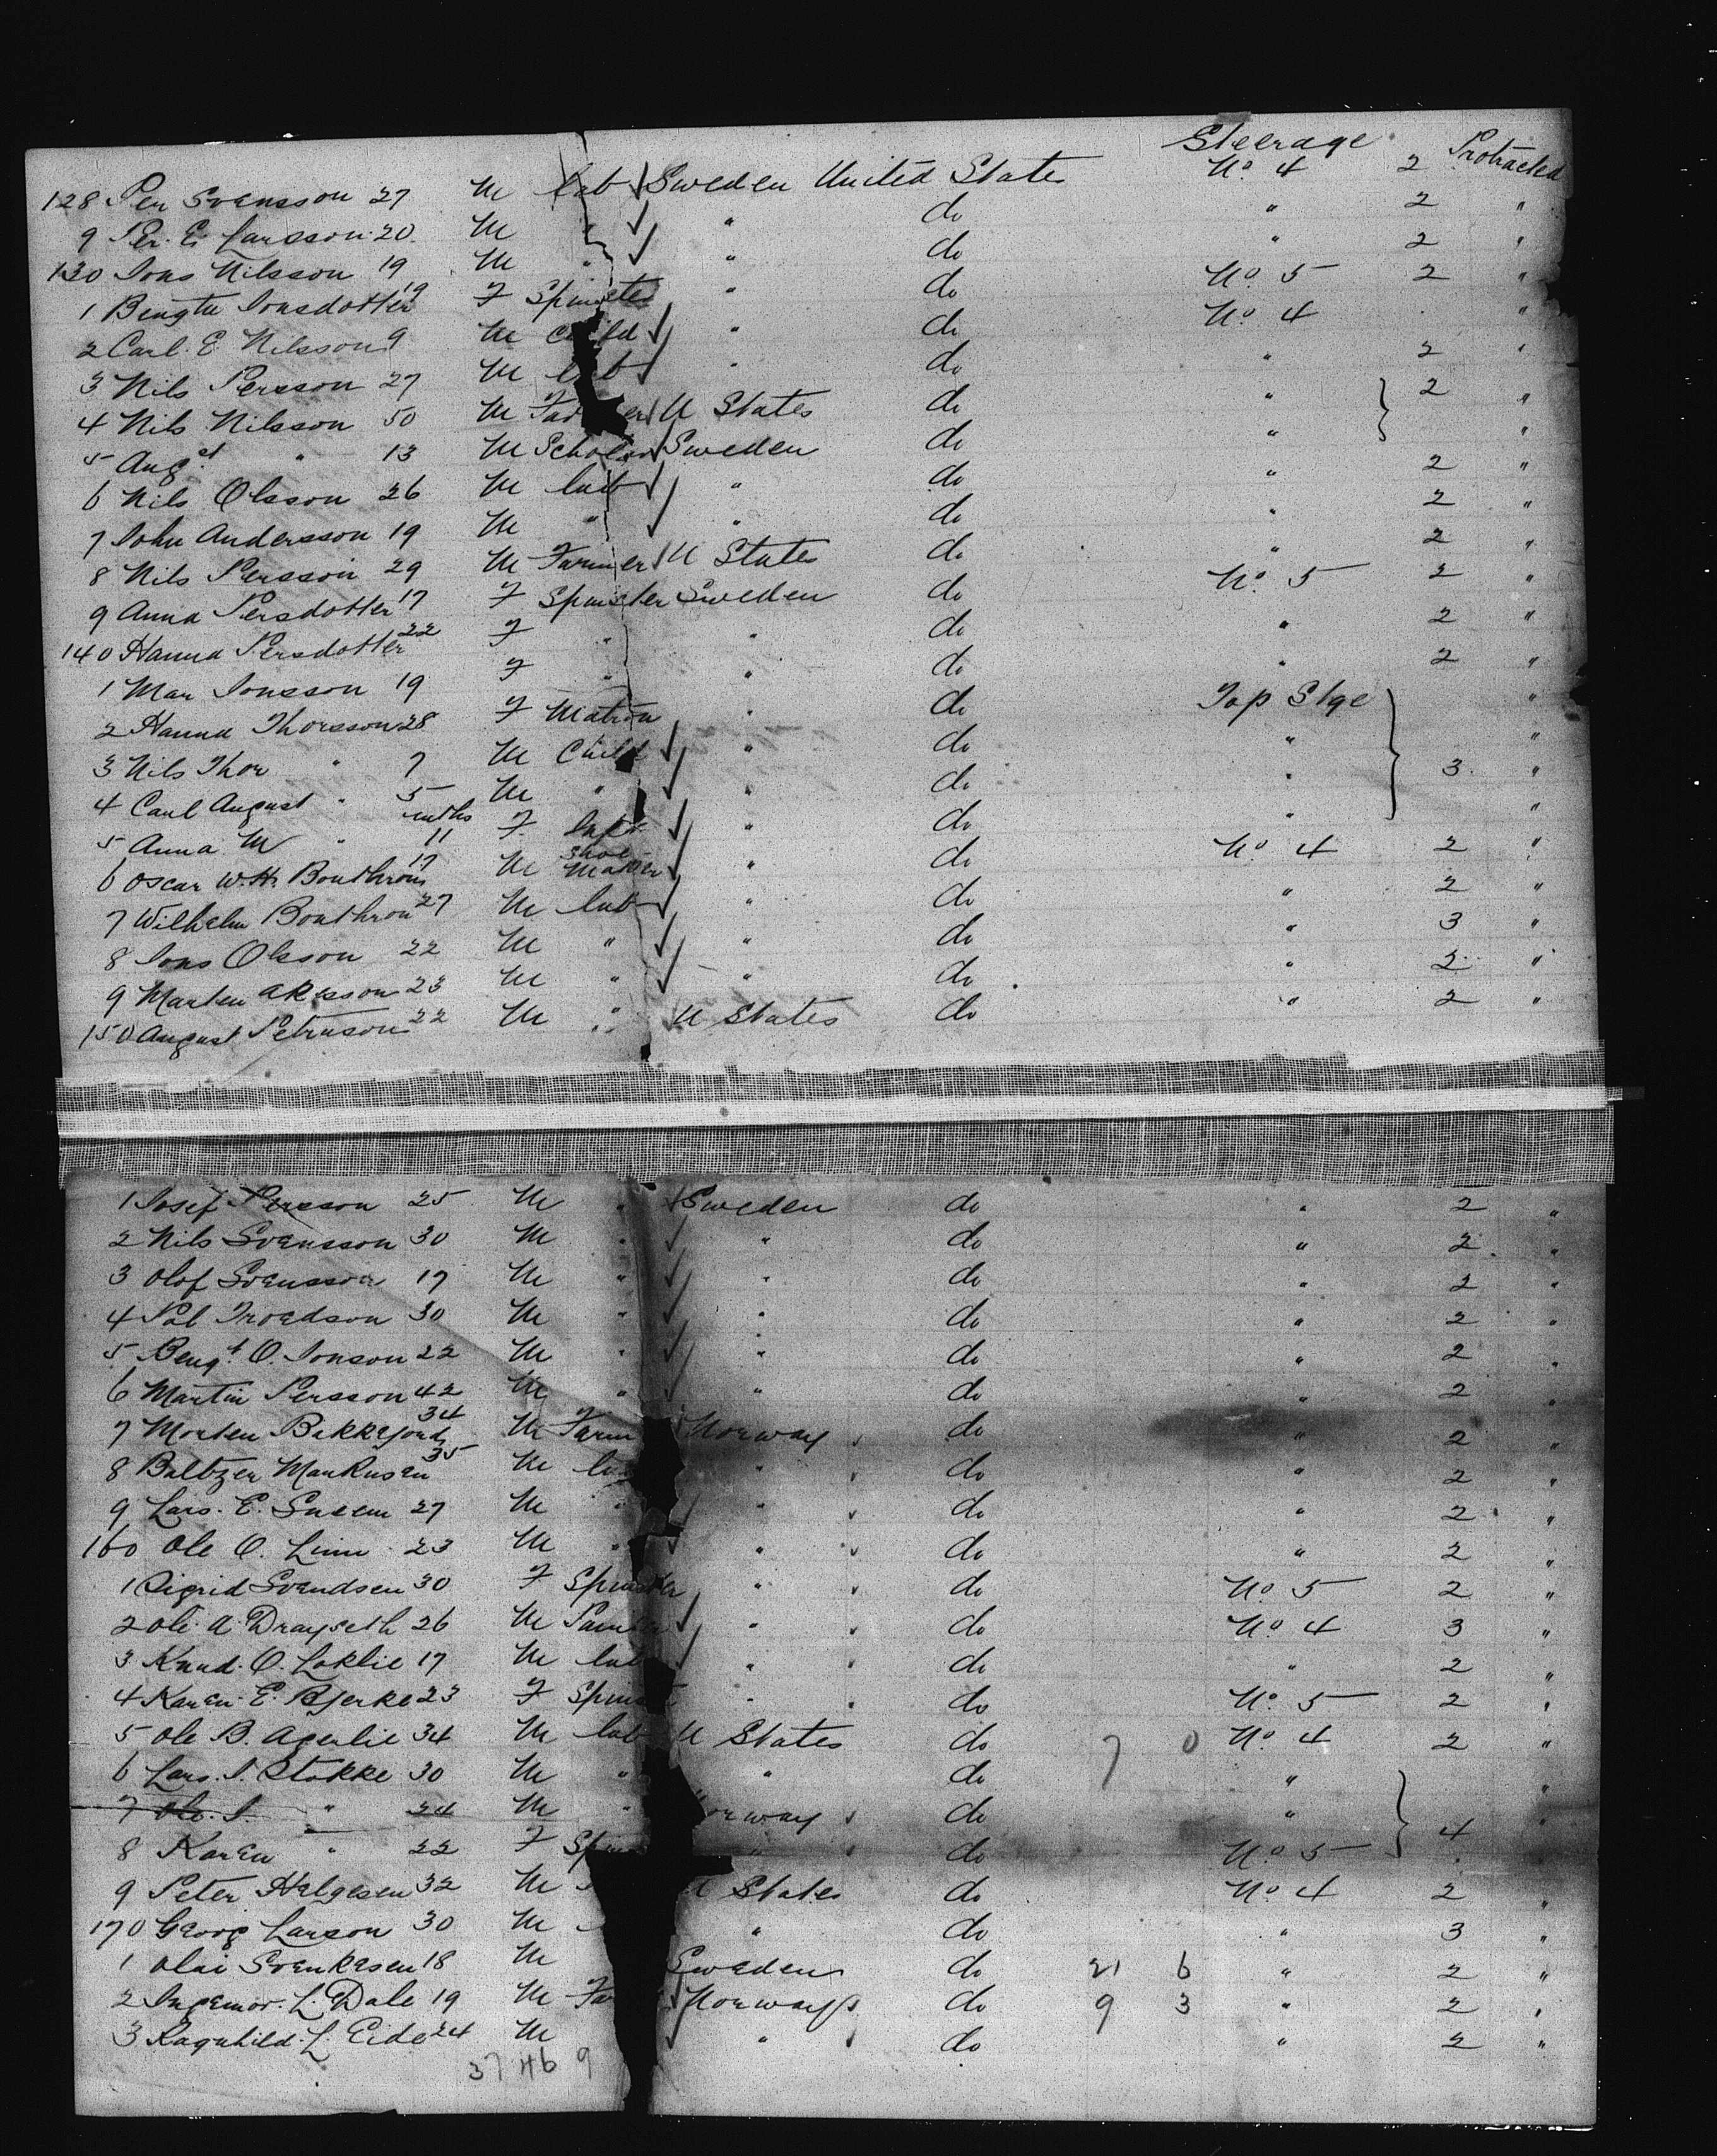 Steerage
128 Per Svensson 27 M lab Sweden United States No. 4 2 Protracted
9 Per. E. Larsson 20 M " " do " 2 "
130 Jons Nilsson 19 M " " do " 2 "
1 Bengta Jonsdotter 19 F Spinster " do No. 5 2 "
2 Carl. E. Nilsson 9 M Child " do No. 4 "
3 Nils Persson 27 M lab " do " 2 "
4 Nils Nilsson 50 M Farmer U States do " 2 "
5 Augst " 13 M Scholar Sweden do " "
6 Nils Olsson 26 M lab " do " 2 "
7 John Andersson 19 M " " do " 2 "
8 Nils Persson 29 M Farmer U States do " 2 "
9 Anna Persdotter 17 F Spinster Sweden do No. 5 2 "
140 Hanna Persdotter 22 F " " do " 2 "
1 Mar Jonsson 19 F " " do " 2 "
2 Hanna Thorsson 28 F Matron " do Top Stge "
3 Nils Thor " 7 M Child " do " "
4 Carl August " 5 M " " do " 3 "
5 Anna M " mths 11 F Inft " do " "
6 Oscar W. H. Bouthron 19 M Shoe Maker " do No. 4 2 "
7 Wilhelm Bouthron 27 M lab " do " 2 "
8 Jons Olsson 22 M " " do " 3 "
9 Marten Akesson 23 M " " do " 2 "
150 August Petruson 22 M " U States do " 2 "
1 Josef Persson 25 M " Sweden do " 2 "
2 Nils Svensson 30 M " " do " 2 "
3 Olof Svensson 17 M " " do " 2 "
4 Pal Troedson 30 M " " do " 2 "
5 Bengt O. Jonson 22 M " " do " 2 "
6 Martin Persson 42 M " " do " 2 "
7 Morten 34 M Farm Norway do " 2 "
8 Baltzer Markusen 35 M " do " 2 "
9 Lars. E. 27 M " " do " 2 "
160 Ole O. 23 M " " do " 2 "
1 Sigrid Svendsen 30 F Spinster " do No. 5 2 "
2 Ole. A. Drayseth 26 M " do No. 4 3 "
3 Knud. O. Loklie 17 M lab " do " 2 "
4 Karen. E. Bjerke 23 F " do No. 5 2 "
5 Ole B. 34 M lab U States do 7 0 No. 4 2 "
6 Lars. J. Stokke 30 M " " do " "
7 Ole. J. " 24 M " do " "
8 Karen " 22 F " do No. 5 4
9 Peter Helgesen 32 M States do No. 4 2 "
170 Georg Larson 30 M " do " 3 "
1 Olai 18 M Sweden do 21 6 " 2 "
2 Ingemor. L. Dale 19 M Norway do 9 3 " 2 "
3 Ragnhild. L Eide 24 M " do " 2 "
37 46 9